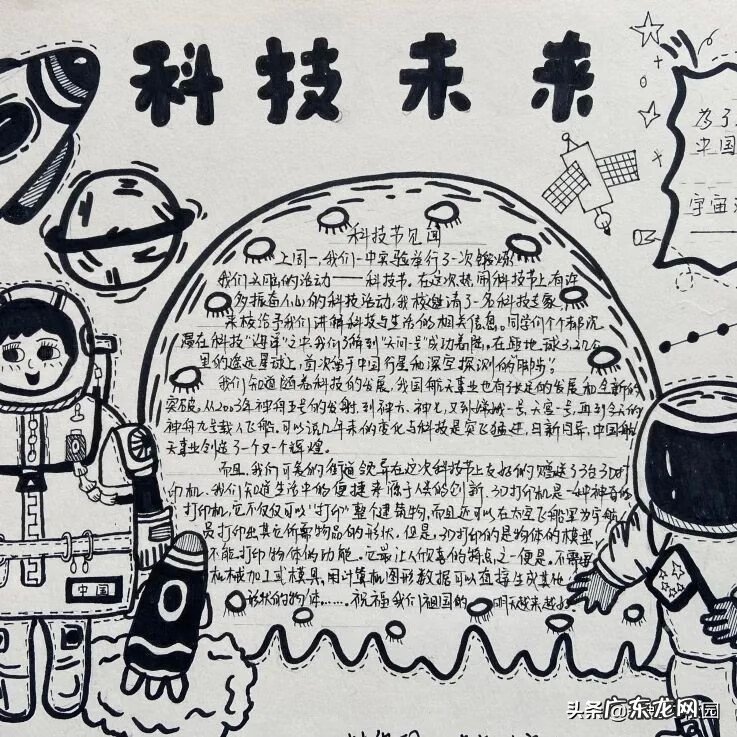 科技未来
为了
中国
宇宙
科技节见闻
上周一,我们一中实验举行了一次锻炼
我们头脑的活动——科技节。在这次热闹科技节上有许
多振奋人心的科技活动,我校邀请了一名科技专家
来校给予我们讲解科技与生活的相关信息。同学们个个都沉
浸在科技"海洋"之中,我们了解到"天问一号"成功着陆。在距地球3.2亿公
里的遥远星球上,首次留下中国行星和深空探测的"脚步"。
我们知道随着科技的发展,我国航天事业也有长足的发展和全新的
突破。从2003年神舟五号的发射,到神六、神七,又到嫦娥一号、天宫一号,再到今天的
神舟九号载人飞船。可以说几年来的变化与科技是突飞猛进、日新月异,中国航
天事业创造了一个又一个辉煌。
而且,我们可爱的街道领导在这次科技节上友好的赠送了3台3D打
印机。我们知道生活中的便捷来源于人们的创新,3D打印机是一种神奇的
打印机,它不仅仅可以"打印"整个建筑物,而且还可以在太空飞船里为宇航
员打印出其它所需物品的形状。但是,3D打印的是物体的模型
不能打印物体的功能。它最让人欣喜的特点之一便是,不需要
机械加工或模具,用计算机图形数据可以直接生成其他
形状的物体……祝福我们祖国的明天越来越好
中国
头条@广东龙网园